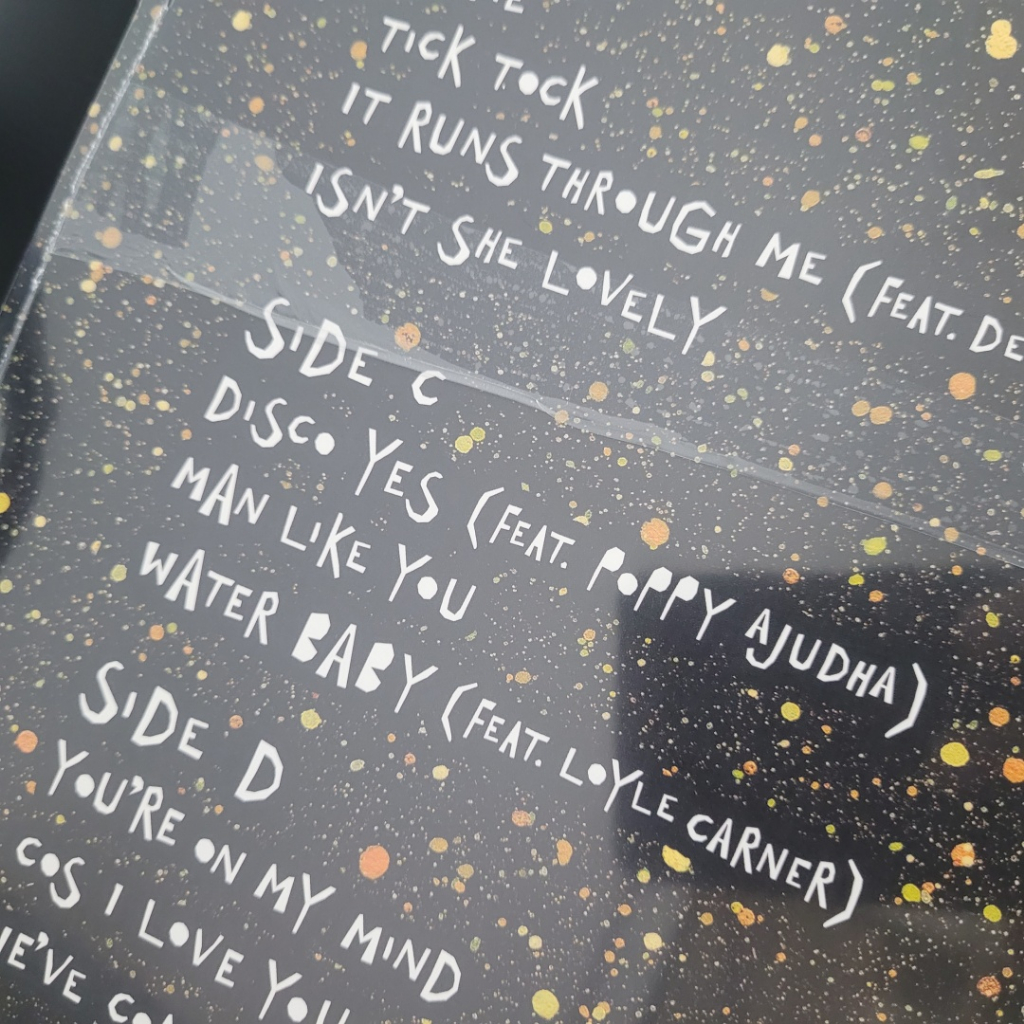 TICK TOCK
IT RUNS THROUGH ME (FEAT. DE
ISN'T SHE LOVELY
SIDE C
DISCO YES (FEAT. POPPY AJUDHA)
MAN LIKE YOU
WATER BABY (FEAT. LOYLE CARNER)
SIDE D
YOU'RE ON MY MIND
COS I LOVE YOU
WE'VE